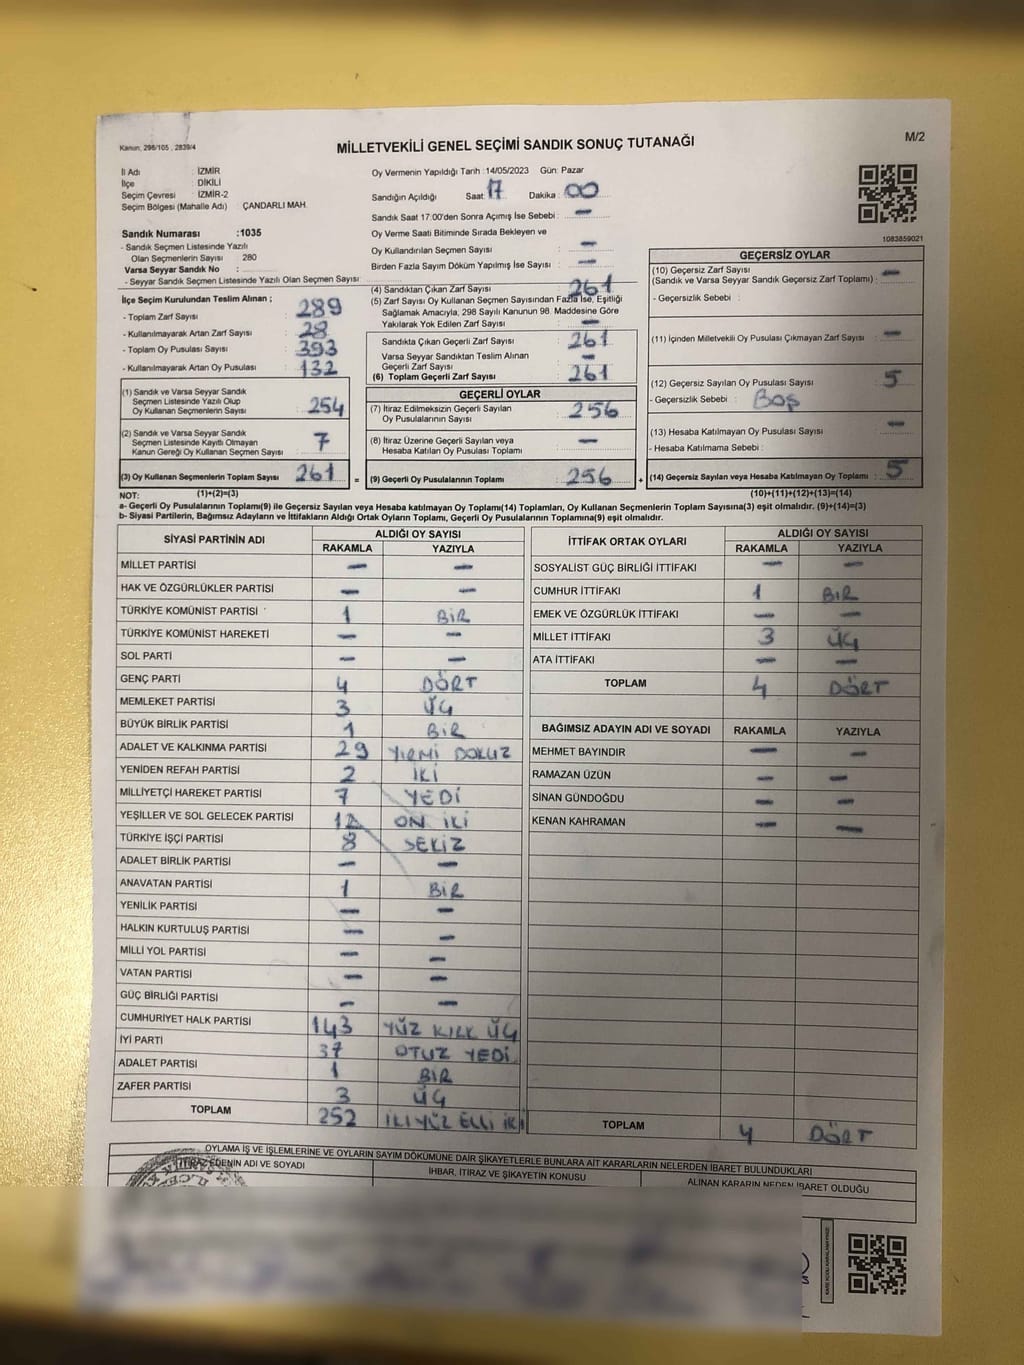 Kanun; 298/105 , 2839/4
MİLLETVEKİLİ GENEL SEÇİMİ SANDIK SONUÇ TUTANAĞI
M/2
İl Adı : İZMİR
İlçe : DİKİLİ
Seçim Çevresi : İZMİR-2
Seçim Bölgesi (Mahalle Adı) ÇANDARLI MAH.
Sandık Numarası :1035
- Sandık Seçmen Listesinde Yazılı
Olan Seçmenlerin Sayısı : 280
Varsa Seyyar Sandık No :
- Seyyar Sandık Seçmen Listesinde Yazılı Olan Seçmen Sayısı :
İlçe Seçim Kurulundan Teslim Alınan ;
- Toplam Zarf Sayısı : 289
- Kullanılmayarak Artan Zarf Sayısı : 28
- Toplam Oy Pusulası Sayısı : 393
- Kullanılmayarak Artan Oy Pusulası : 132
(1) Sandık ve Varsa Seyyar Sandık
Seçmen Listesinde Yazılı Olup
Oy Kullanan Seçmenlerin Sayısı : 254
(2) Sandık ve Varsa Seyyar Sandık
Seçmen Listesinde Kayıtlı Olmayan
Kanun Gereği Oy Kullanan Seçmen Sayısı : 7
(3) Oy Kullanan Seçmenlerin Toplam Sayısı : 261
Oy Vermenin Yapıldığı Tarih :14/05/2023 Gün: Pazar
Sandığın Açıldığı Saat: 17 Dakika : 00
Sandık Saat 17:00'den Sonra Açımış İse Sebebi : —
Oy Verme Saati Bitiminde Sırada Bekleyen ve
Oy Kullandırılan Seçmen Sayısı : —
Birden Fazla Sayım Döküm Yapılmış İse Sayısı : —
(4) Sandıktan Çıkan Zarf Sayısı : 261
(5) Zarf Sayısı Oy Kullanan Seçmen Sayısından Fazla İse, Eşitliği
Sağlamak Amacıyla, 298 Sayılı Kanunun 98. Maddesine Göre
Yakılarak Yok Edilen Zarf Sayısı : —
Sandıkta Çıkan Geçerli Zarf Sayısı : 261
Varsa Seyyar Sandıktan Teslim Alınan
Geçerli Zarf Sayısı : —
(6) Toplam Geçerli Zarf Sayısı : 261
GEÇERLİ OYLAR
(7) İtiraz Edilmeksizin Geçerli Sayılan
Oy Pusulalarının Sayısı : 256
(8) İtiraz Üzerine Geçerli Sayılan veya
Hesaba Katılan Oy Pusulası Toplamı : —
= (9) Geçerli Oy Pusulalarının Toplamı : 256 +
1083859021
GEÇERSİZ OYLAR
(10) Geçersiz Zarf Sayısı
(Sandık ve Varsa Seyyar Sandık Geçersiz Zarf Toplamı) : —
- Geçersizlik Sebebi :
(11) İçinden Milletvekili Oy Pusulası Çıkmayan Zarf Sayısı : —
(12) Geçersiz Sayılan Oy Pusulası Sayısı : 5
- Geçersizlik Sebebi : BOŞ
(13) Hesaba Katılmayan Oy Pusulası Sayısı : —
- Hesaba Katılmama Sebebi :
(14) Geçersiz Sayılan veya Hesaba Katılmayan Oy Toplamı : 5
NOT: (1)+(2)=(3) (10)+(11)+(12)+(13)=(14)
a- Geçerli Oy Pusulalarının Toplamı(9) ile Geçersiz Sayılan ve Hesaba katılmayan Oy Toplamı(14) Toplamları, Oy Kullanan Seçmenlerin Toplam Sayısına(3) eşit olmalıdır. (9)+(14)=(3)
b- Siyasi Partilerin, Bağımsız Adayların ve İttifakların Aldığı Ortak Oyların Toplamı, Geçerli Oy Pusulalarının Toplamına(9) eşit olmalıdır.
SİYASİ PARTİNİN ADI ALDIĞI OY SAYISI
RAKAMLA YAZIYLA
MİLLET PARTİSİ — —
HAK VE ÖZGÜRLÜKLER PARTİSİ — —
TÜRKİYE KOMÜNİST PARTİSİ 1 BİR
TÜRKİYE KOMÜNİST HAREKETİ — —
SOL PARTİ — —
GENÇ PARTİ 4 DÖRT
MEMLEKET PARTİSİ 3 ÜÇ
BÜYÜK BİRLİK PARTİSİ 1 BİR
ADALET VE KALKINMA PARTİSİ 29 YİRMİ DOKUZ
YENİDEN REFAH PARTİSİ 2 İKİ
MİLLİYETÇİ HAREKET PARTİSİ 7 YEDİ
YEŞİLLER VE SOL GELECEK PARTİSİ 12 ON İKİ
TÜRKİYE İŞÇİ PARTİSİ 8 SEKİZ
ADALET BİRLİK PARTİSİ — —
ANAVATAN PARTİSİ 1 BİR
YENİLİK PARTİSİ — —
HALKIN KURTULUŞ PARTİSİ — —
MİLLİ YOL PARTİSİ — —
VATAN PARTİSİ — —
GÜÇ BİRLİĞİ PARTİSİ — —
CUMHURİYET HALK PARTİSİ 143 YÜZ KIRK ÜÇ
İYİ PARTİ 37 OTUZ YEDİ
ADALET PARTİSİ 1 BİR
ZAFER PARTİSİ 3 ÜÇ
TOPLAM 252 İKİ YÜZ ELLİ İKİ
İTTİFAK ORTAK OYLARI ALDIĞI OY SAYISI
RAKAMLA YAZIYLA
SOSYALİST GÜÇ BİRLİĞİ İTTİFAKI — —
CUMHUR İTTİFAKI 1 BİR
EMEK VE ÖZGÜRLÜK İTTİFAKI — —
MİLLET İTTİFAKI 3 ÜÇ
ATA İTTİFAKI — —
TOPLAM 4 DÖRT
BAĞIMSIZ ADAYIN ADI VE SOYADI RAKAMLA YAZIYLA
MEHMET BAYINDIR — —
RAMAZAN ÜZÜN — —
SİNAN GÜNDOĞDU — —
KENAN KAHRAMAN — —
TOPLAM 4 DÖRT
OYLAMA İŞ VE İŞLEMLERİNE VE OYLARIN SAYIM DÖKÜMÜNE DAİR ŞİKAYETLERLE BUNLARA AİT KARARLARIN NELERDEN İBARET BULUNDUKLARI
İTİRAZ EDENİN ADI VE SOYADI İHBAR, İTİRAZ VE ŞİKAYETİN KONUSU ALINAN KARARIN NEDEN İBARET OLDUĞU